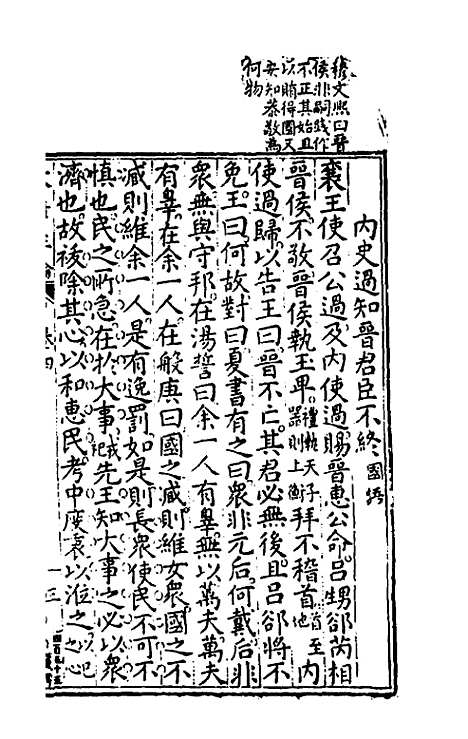 穆文熙曰晉
侯非嗣錢作
不正其始且
以賂得國又
安知恭敬為
何物
內史過知晉君臣不終 國語
襄王使召公過及內使過賜晉惠公命呂甥郤芮相
晉侯不敬晉侯執玉卑禮執天子器則上衡拜不稽首首至地內
使過歸以告王曰晉不亡其君必無後且呂郤將不
免王曰何故對曰夏書有之曰衆非元后何戴后非
衆無與守邦在湯誓曰余一人有辠無以萬夫萬夫
有辠在余一人在般庚曰國之臧則維女衆國之不
臧則維余一人是有逸罰如是則長衆使民不可不
慎也民之所急在於大事戎祀先王知大事之必以衆
濟也故祓除其心以和惠民考中度衷以涖之以己之心
卷四